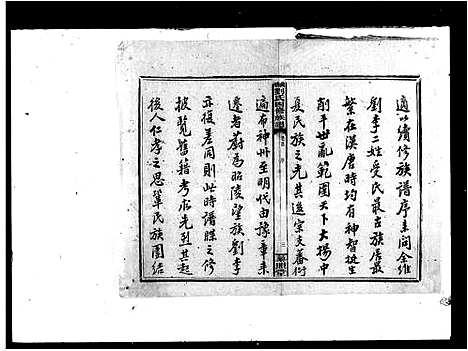 適以續修族譜序立問余維
劉李二姓受氏最古族居最
繁在漢唐時均有神智挺生
削平世亂範圍天下大揚中
夏民族之光其遺宗支蕃衍
劉氏四修族譜
適布神州至明代由豫章來
遷者蔚為昭陵望族劉李
亦後差同則此時譜牒之修
披覽舊籍考求先烈其起
後人仁孝之思鞏民族團結